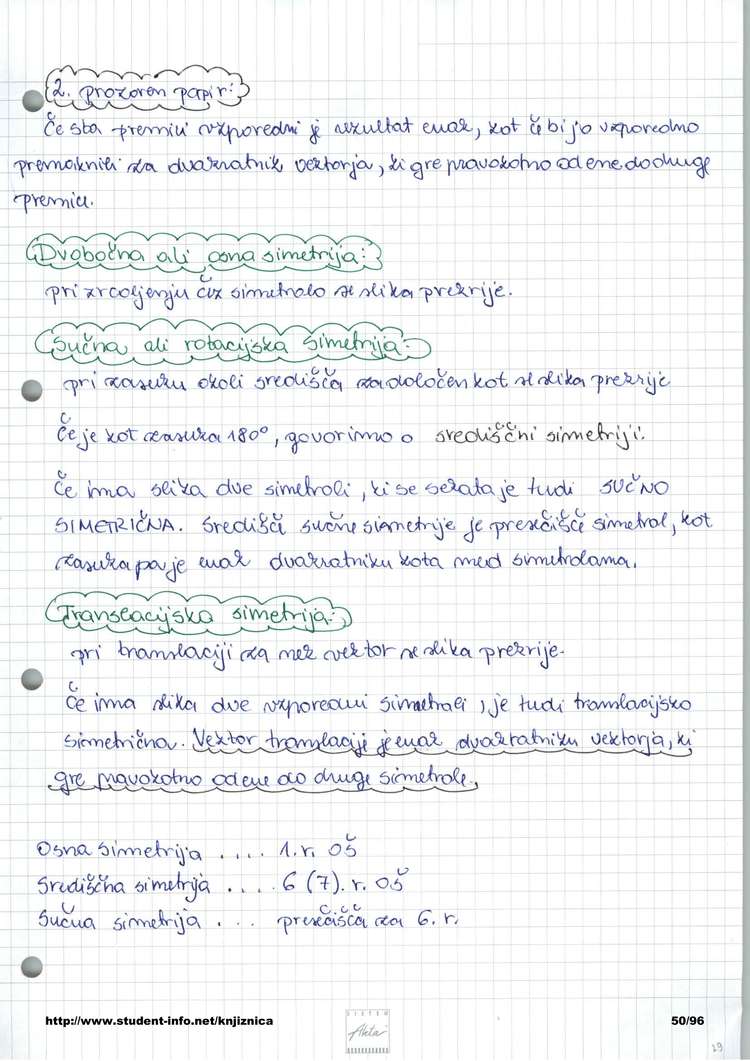 2. prozoren papir:
Če sta premici vzporedni je rezultat enak, kot če bi jo vzporedno
premaknili za dvakratnik vektorja, ki gre pravokotno od ene do druge
premice.
Dvobočna ali osna simetrija:
pri zrcaljenju čez simetralo se slika prekrije.
Sučna ali rotacijska simetrija:
pri zasuku okoli središča za določen kot se slika prekrije
Če je kot zasuka 180°, govorimo o središčni simetriji.
Če ima slika dve simetrali, ki se sekata je tudi SUČNO
SIMETRIČNA. Središče sučne simetrije je presečišče simetral, kot
zasuka pa je enak dvakratniku kota med simetralama.
Translacijska simetrija:
pri translaciji za nek vektor se slika prekrije.
Če ima slika dve vzporedni simetrali, je tudi translacijsko
simetrična. Vektor translacije je enak dvakratniku vektorja, ki
gre pravokotno od ene do druge simetrale.
Osna simetrija .... 1. r. OŠ
Središčna simetrija .... 6 (7). r. OŠ
Sučna simetrija ... presečišča za 6. r.
http://www.student-info.net/knjiznica
SISTEM
Akta
50/96
29